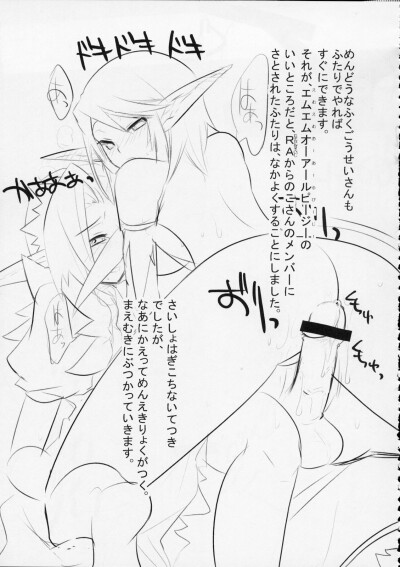 めんどうなふくごうせいさんも
ふたりでやれば、
すぐにできます。
それが、エムエムオーアールピージーの
いいところだと、RAからのこさんのメンバーに
さとされたふたりは、なかよくすることにしました。
ドキドキドキ
はぁっ
おりっ
もっ
もっ
さいしょはぎこちないてつき
でしたが、
なあにかえってめんえきりょくがつく。
まえむきにぶつかっていきます。